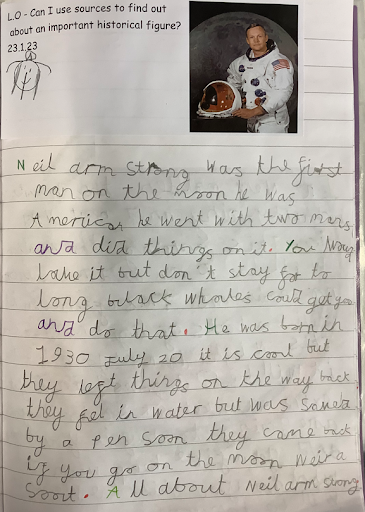 L.O - Can I use sources to find out
about an important historical figure?
23.1.23
Neil arm strong was the first
man on the moon he was
American he went with two mans
and did things on it. You may
lake it but don't stay for to
long black whales could get you
and do that. He was born in
1930 July 20 it is cool but
they left things on the way back
they fel in water but was
by a pen soon they came back
if you go on the moon
. All about Neil arm strong